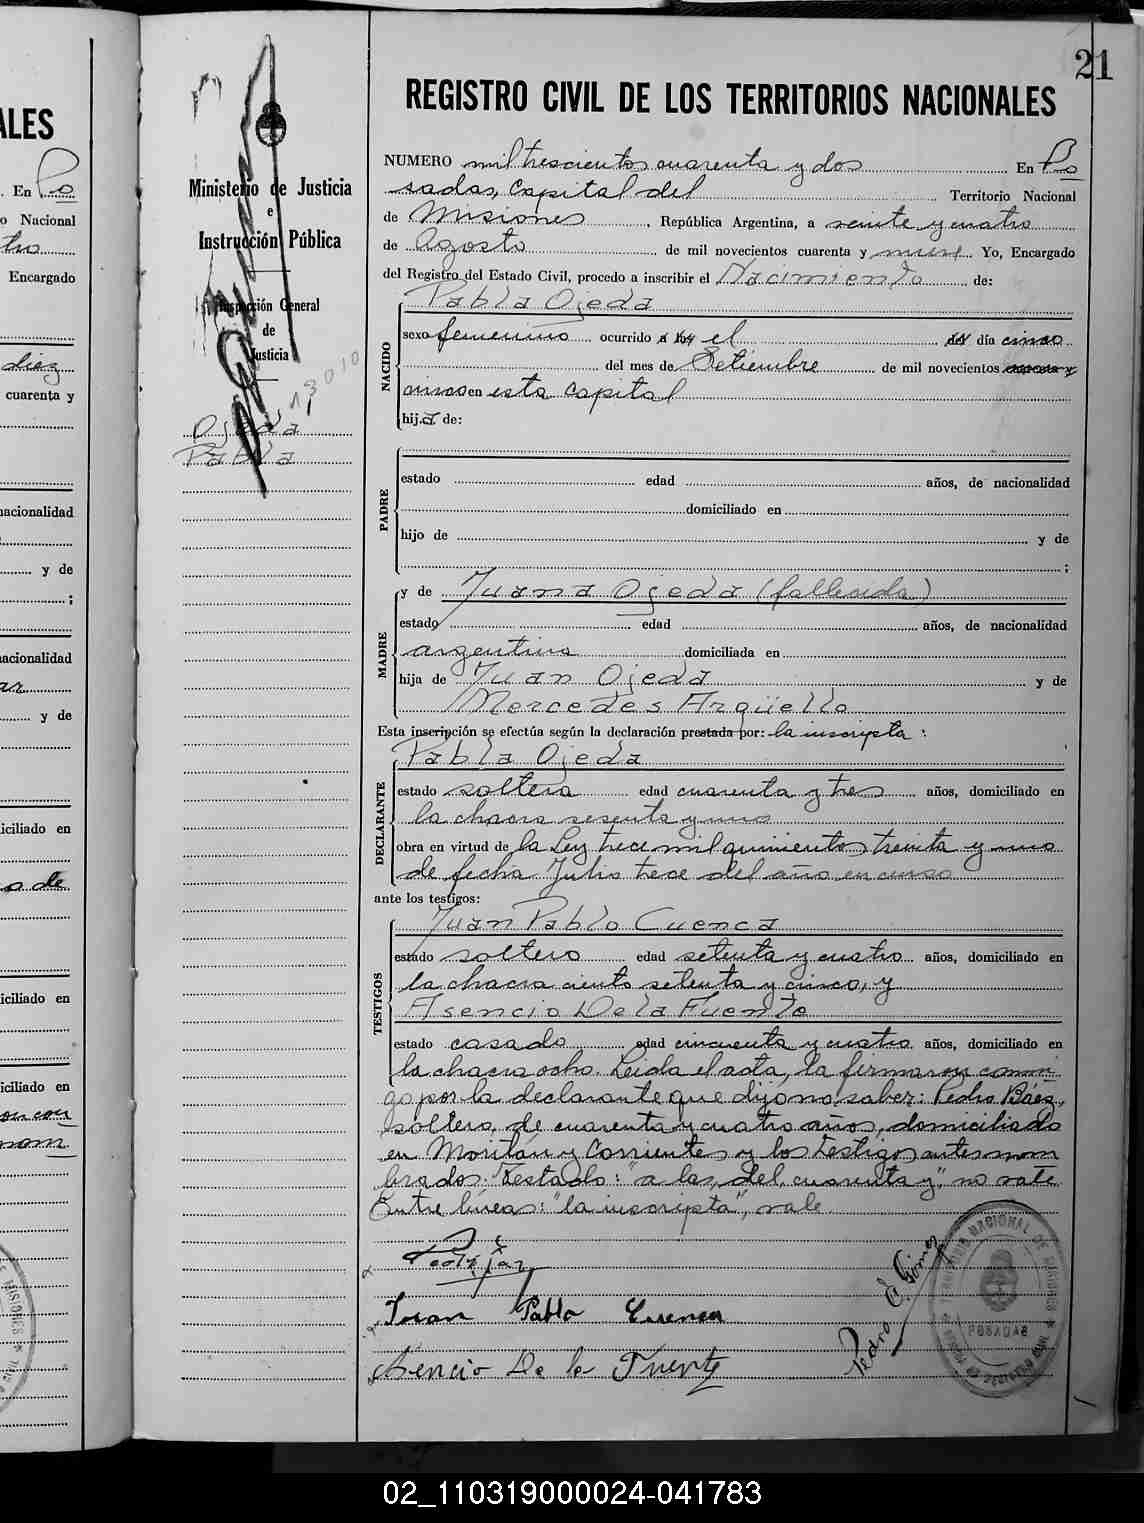 21
REGISTRO CIVIL DE LOS TERRITORIOS NACIONALES
Ministerio de Justicia
e
Instrucción Pública
Inspección General
de
Justicia
13010
Ojeda
Pabla
NUMERO mil trescientos cuarenta y dos En Po
sadas, Capital del Territorio Nacional
de Misiones, República Argentina, a veinte y cuatro
de Agosto de mil novecientos cuarenta y nueve Yo, Encargado
del Registro del Estado Civil, procedo a inscribir el Nacimiento de:
NACIDO
Pabla Ojeda
sexo femenino ocurrido a las el del día cinco
del mes de Setiembre de mil novecientos cuarenta y
cinco en esta Capital
hija de:
PADRE
estado edad años, de nacionalidad
domiciliado en
hijo de y de
;
MADRE
y de Juana Ojeda (fallecida)
estado edad años, de nacionalidad
argentina domiciliada en
hija de Juan Ojeda y de
Mercedes Argüello
Esta inscripción se efectúa según la declaración prestada por: la inscripta:
DECLARANTE
Pabla Ojeda
estado soltera edad cuarenta y tres años, domiciliado en
la chacra sesenta y uno
obra en virtud de la Ley trece mil quinientos treinta y uno
de fecha Julio trece del año en curso
ante los testigos:
TESTIGOS
Juan Pablo Cuenca
estado soltero edad setenta y cuatro años, domiciliado en
la chacra ciento setenta y cinco, y
Asencio De la Fuente
estado casado edad cincuenta y cuatro años, domiciliado en
la chacra ocho. Leida el acta, la firmaron conmi
go por la declarante que dijo no saber: Pedro Báez,
soltero, de cuarenta y cuatro años, domiciliado
en Moritán y Corrientes y los testigos antes nom
brados. Testado: "a las, del, cuarenta y", no vale
Entre líneas: "la inscripta", vale.
Juan Pablo Cuenca
Asencio De la Fuente
Pedro Gómez
TERRITORIO NACIONAL DE MISIONES
POSADAS
ALES
En Po
o Nacional
Encargado
diez
cuarenta y
nacionalidad
y de
;
nacionalidad
y de
iciliado en
iciliado en
iciliado en
02_110319000024-041783